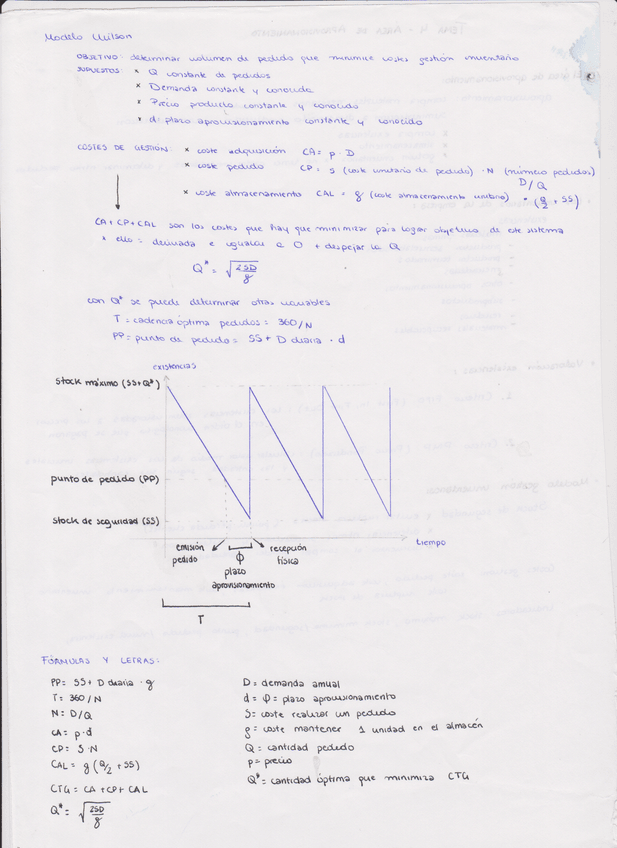 Modelo Wilson
OBJETIVO: determinar volumen de pedido que minimice costes gestión inventario
SUPUESTOS: × Q constante de pedidos
× Demanda constante y conocida
× Precio producto constante y conocido
× d: plazo aprovisionamiento constante y conocido
COSTES DE GESTIÓN: × coste adquisición CA = p · D
× coste pedido CP = S (coste unitario de pedido) · N (número pedidos)
D/Q
× coste almacenamiento CAL = g (coste almacenamiento unitario) · (Q/2 + SS)
CA + CP + CAL son los costes que hay que minimizar para lograr objetivo de este sistema
* ello = derivada e igualar a 0 + despejar la Q
Q* = √(2SD/g)
con Q* se puede determinar otras variables
T = cadencia óptima pedidos = 360/N
PP = punto de pedido = SS + D diaria · d
existencias
Stock máximo (SS+Q*)
punto de pedido (PP)
stock de seguridad (SS)
tiempo
emisión pedido
φ
plazo aprovisionamiento
recepción física
T
FÓRMULAS Y LETRAS:
PP = SS + D diaria · g
T = 360/N
N = D/Q
CA = p · d
CP = S · N
CAL = g (Q/2 + SS)
CTG = CA + CP + CAL
Q* = √(2SD/g)
D = demanda anual
d = φ = plazo aprovisionamiento
S = coste realizar un pedido
g = coste mantener 1 unidad en el almacén
Q = cantidad pedido
p = precio
Q* = cantidad óptima que minimiza CTG